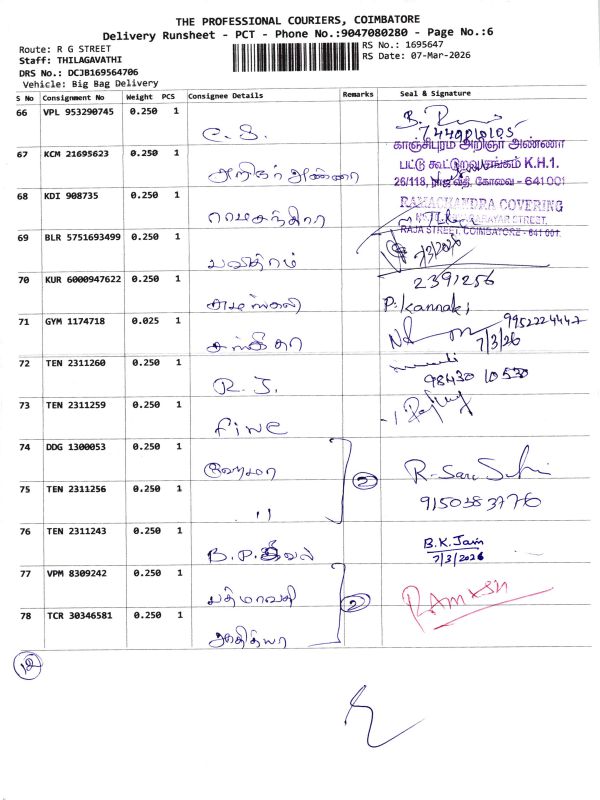 THE PROFESSIONAL COURIERS, COIMBATORE
Delivery Runsheet - PCT - Phone No.:9047080280 - Page No.:6
Route: R G STREET
RS No.: 1695647
Staff: THILAGAVATHI
RS Date: 07-Mar-2026
DRS No.: DCJB169564706
Vehicle: Big Bag Delivery
S No Consignment No Weight PCS Consignee Details Remarks Seal & Signature
66 VPL 953290745 0.250 1
67 KCM 21695623 0.250 1 அறிஞர் அண்ணா
காஞ்சிபுரம் அறிஞர் அண்ணா
பட்டு கூட்டுறவு சங்கம் K.H.1.
26/118, ராஜ வீதி, கோவை - 641 001
68 KDI 908735 0.250 1 ராமசந்திரா
RAMACHANDRA COVERING
RAJA STREET, COIMBATORE - 641 001.
69 BLR 5751693499 0.250 1 பவித்ரம் 7/3/2026
70 KUR 6000947622 0.250 1 2391256
P. Kannaki
71 GYM 1174718 0.025 1 9952224447
7/3/26
72 TEN 2311260 0.250 1 R. J. 98430 10530
73 TEN 2311259 0.250 1 Fine
74 DDG 1300053 0.250 1 ஹேமா
75 TEN 2311256 0.250 1 " 2 9150383776
76 TEN 2311243 0.250 1 B.K. Jain
7/3/2026
77 VPM 8309242 0.250 1 பத்மாவதி
78 TCR 30346581 0.250 1 ஆதித்யா 2 RAMESH